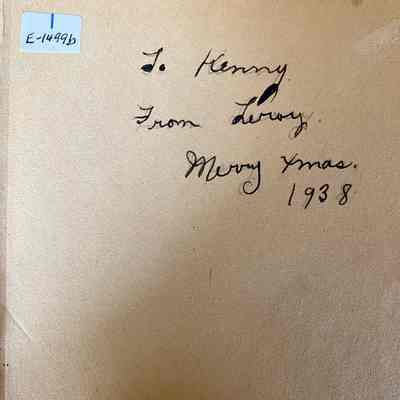 1
E-1499b
To Kenny
From Leroy.
Merry Xmas.
1938